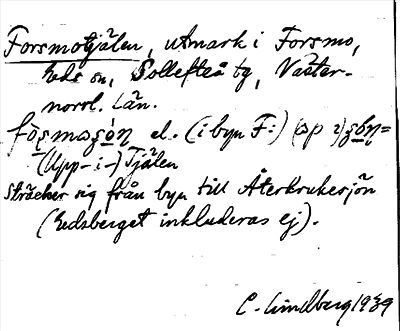 Forsmotjälen, utmark i Forsmo,
Eds sn, Sollefteå tg, Väster-
norrl. län.
el. (i byn F:)
(Upp-i-) Tjälen
sträcker sig från byn till Återbrukesjön
(Edsberget inkluderas ej).
C. Lindberg 1939